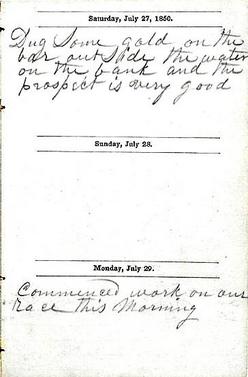 Saturday, July 27, 1850.
Dug Some gold on the
bar out Side the water
on the bank and the
prospect is very good
Sunday, July 28.
Monday, July 29.
Commenced work on our
race this Morning